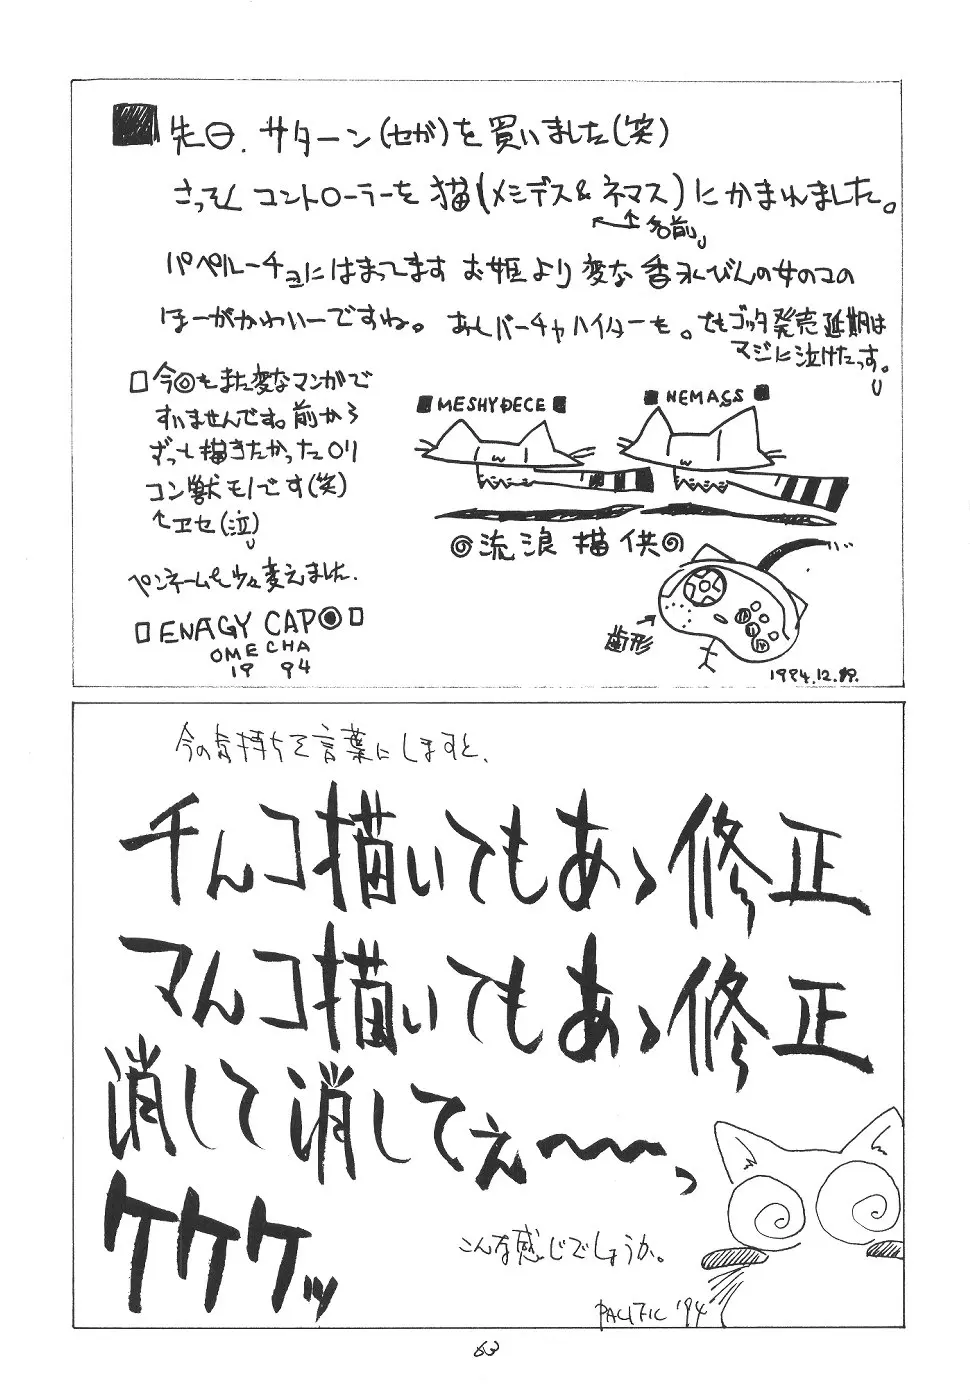 先日、サターン(セガ)を買いました(笑)
さっそくコントローラーを猫(メシデス&ネマス)にかまれました。
名前
パペルーチョにはまってます お姫より変な香水びんの女のコの
ほーがかわいーですね。あとバーチャハイターも。でもゴッタ発売延期は
マジに泣けたっす。
□今回もまた変なマンガで
すいませんです。前から
ずっと描きたかったロリ
コン獣モノです(笑)
↑エセ(泣)
ペンネームを少々変えました.
□ENAGY CAP◎□
OMECHA
1994
■MESHYDECE■
■NEMACS■
◎流浪描供◎
歯形
1994.12.
今の気持ちを言葉にしますと、
チんコ描いてもあゝ修正
マんコ描いてもあゝ修正
消して消してぇ〜〜っ
ケケケッ
こんな感じでしょうか。
PACIFIC '94
63